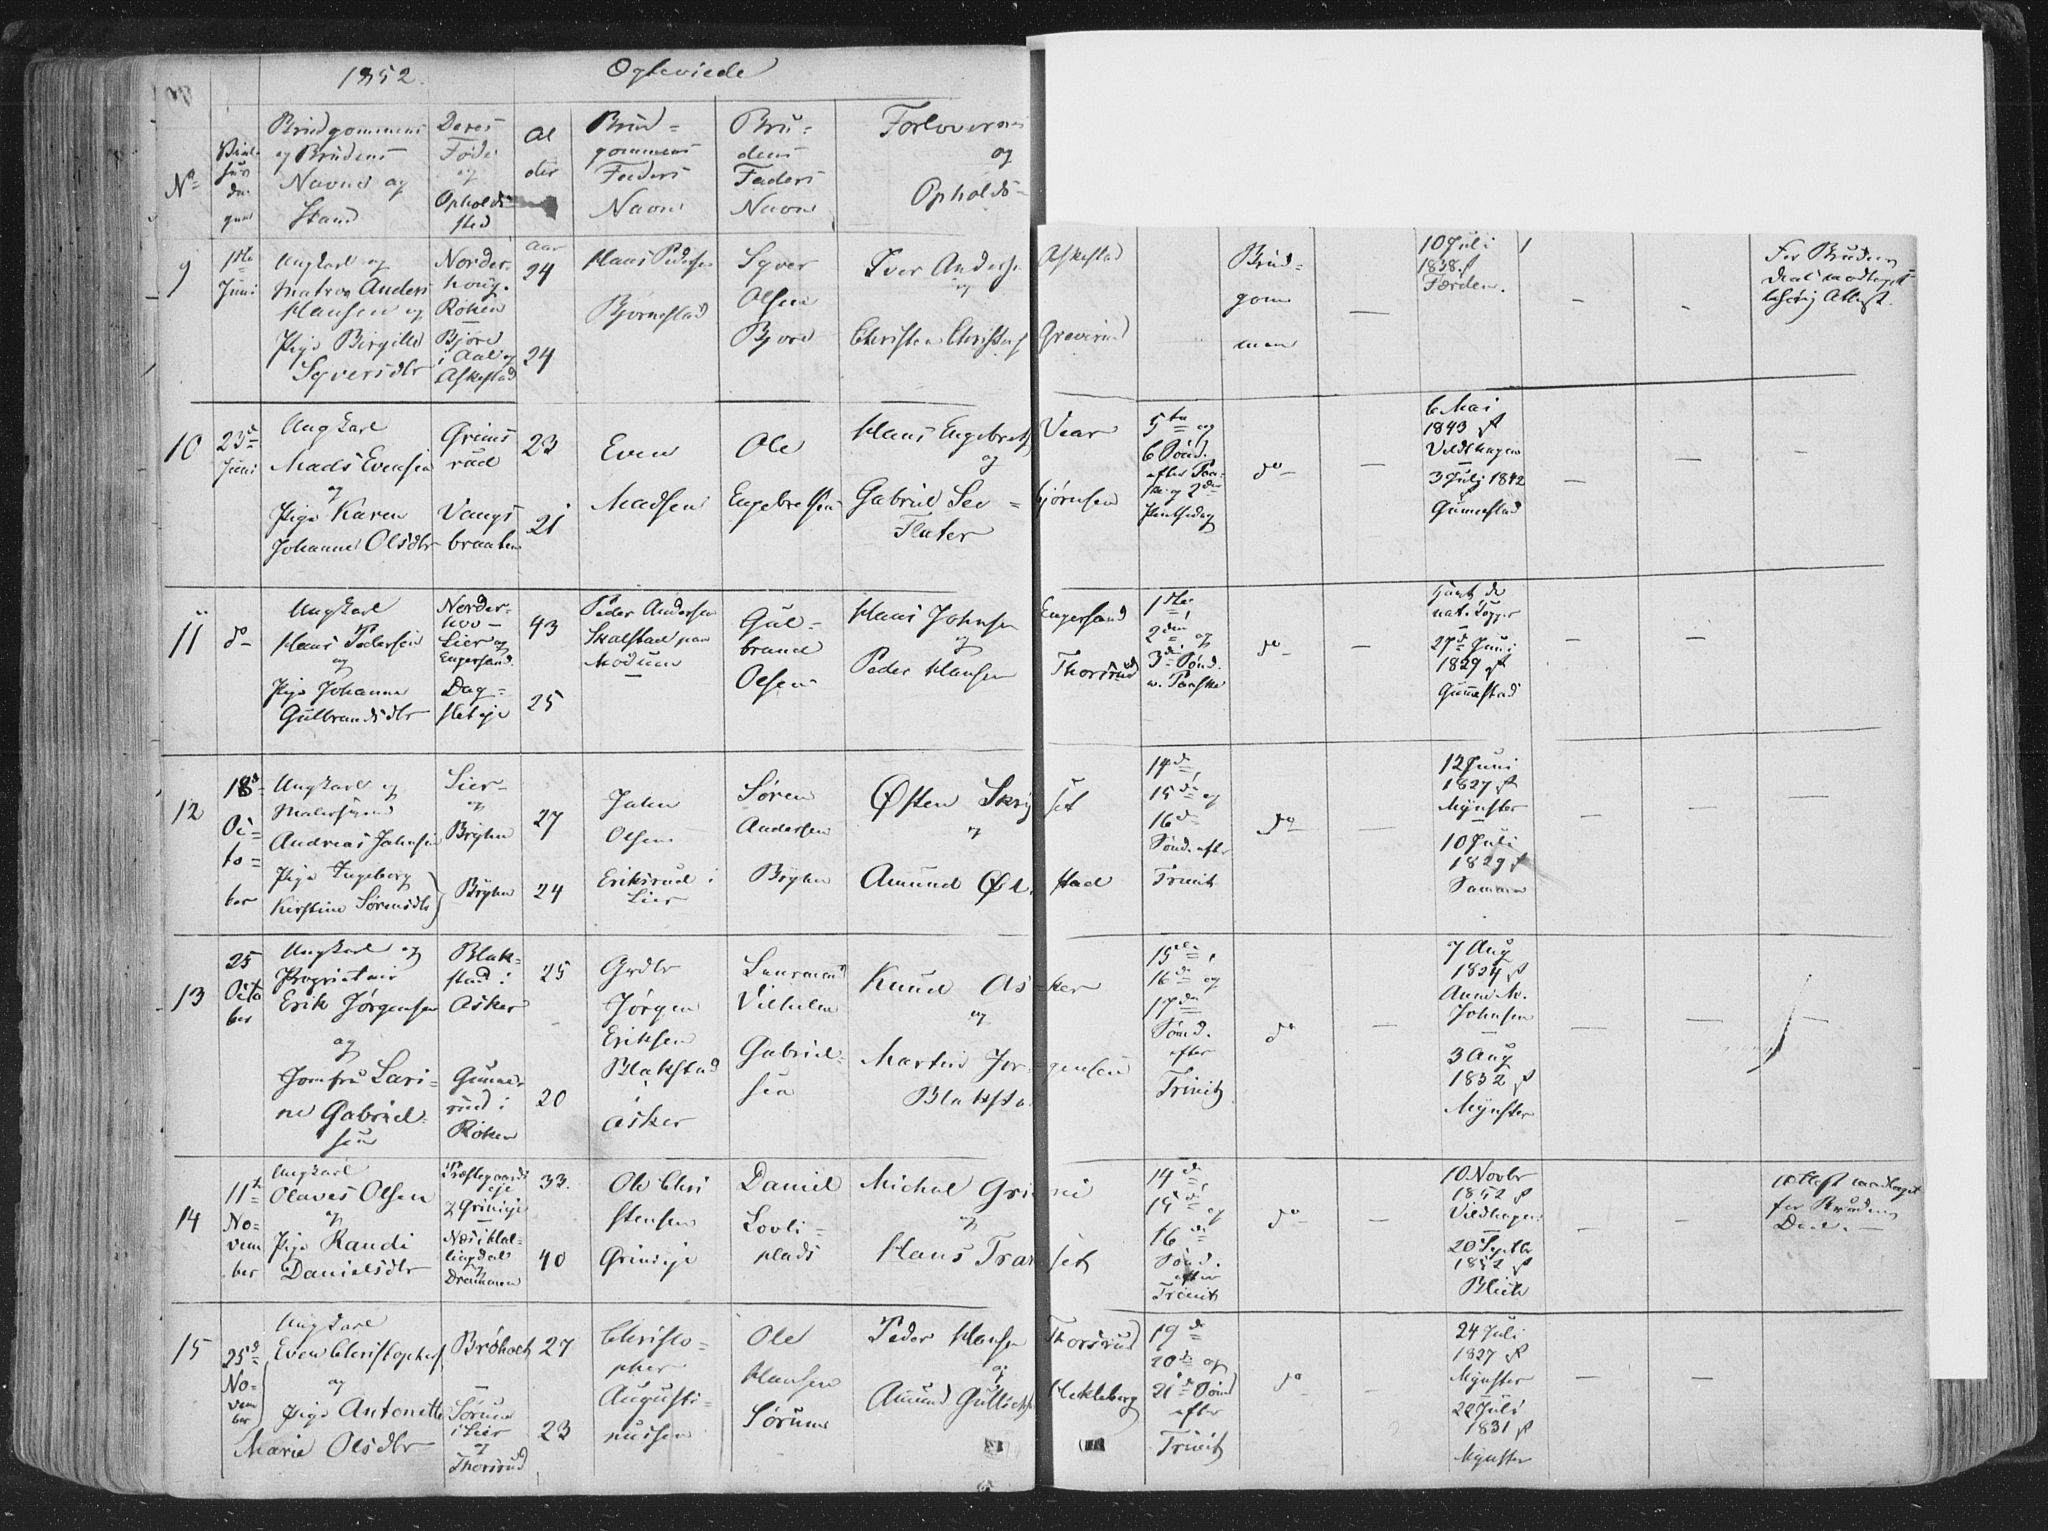 1852. Ægteviede
No
Vielsesdagen
Brudgommens og Brudens Navne og Stand
Deres Føde og Opholdssted
Alder
Brudgommens Faders Navn
Brudens Faders Navn
Forlovernes og Opholds-
9
1ste Juni
Ungkarl og Matros Anders Hansen og
Pige Birgitte Syversdtr
Norderhoug. Røken
Bjøre i Aal og Askestad
Aar 24
24
Hans Pedersen Bjørnestad
Syver Olsen Bjøre
Iver Anders. Askestad
og
Christen Christofs. Graverud
Brudgommen
—
10 Juli 1838. Færden.
1
—
—
For Bruden
10
23de Juni
Ungkarl Mads Evensen
og
Pige Karen Johanne Olsdtr
Grimsrud
Vangsbraaten
23
21
Even Madsen
Ole Engebretsen
Hans Engebrets. Vear
og
Gabriel Sev=bjørnsen
Flater
5te og 6 Sønd. efter Paaske og 2den Pintsedag
do
—
6 Mai 1843
Vildhagen
—
3 Juli 1842
Gunnestad
—
—
—
11
do
Ungkarl Hans Pedersen
og
Pige Johanne Gulbrandsdtr
Norderhov
Lier og Engersand.
Dagsleteje
43
25
Peder Andersen Skalstad paa Modum
Gulbrand Olsen
Hans Johnsen Engersand
og
Peder Hansen Thorsrud
1ste, 2den og 3de Sønd. e. Paaske
do
—
Havt de nat. Kopper
27de Juni 1829
Gunnestad
—
—
—
12
18de October
Ungkarl og Malersvend
Andreas Johnsen
Pige Ingeborg Kirstine Sørensdtr
Lier
og
Bryhn
Bryhn
27
24
John Olsen Eriksrud i Lier
Søren Andersen Bryhn
Østen Skryset
og
Amund Ølstad
14de, 15de og 16de Sønd. efter Trinit.
do
—
12 Juni 1827
Mynster
—
10 Juli 1829
Samme
—
—
—
13
25 October
Ungkarl og Proprietair Erik Jørgensen
og
Jomfru Larine Gabrielsen
Blakstad i Asker
Gunnerud i Røken
25
20
Grdbr Jørgen Eriksen Blakstad i Asker
Laurents Vilhelm Gabrielsen
Knud Asker
og
Martin Jørgensen Blaksta
15de, 16de og 17de Sønd. efter Trinit.
do
—
7 Aug 1834
Anne M. Johnsen
—
3 Aug 1832
Mynster
—
—
—
14
11te November
Ungkarl Olaves Olsen
og
Pige Randi Danielsdtr
Præstegaardseje
Grinieje
—
Næs i Hallingdal og Drammen
33.
40
Ole Christensen Grinieje
Daniel Lovliplads
Michal Grini
og
Hans Transet
14de, 15de og 16de Sønd. efter Trinit.
do
—
10 Novbr 1842
Vildhagen
—
20 Septbr 1852
Blich
—
—
Attest modtaget for Brudens Deel. —
15
25de November
Ungkarl Even Christophers.
og
Pige Antonette Marie Olsdtr
Brøholt
—
Sørum i Lier og Thorsrud
27
23
Christopher Augustinussen
Ole Hansen Sørum
Peder Hansen Thorsrud
og
Amund Gulliks. Hekleberg
19de 20de og 21de Sønd. efter Trinit.
do
—
24 Juli 1827
Mynster
—
22 Juli 1831
Mynster
—
—